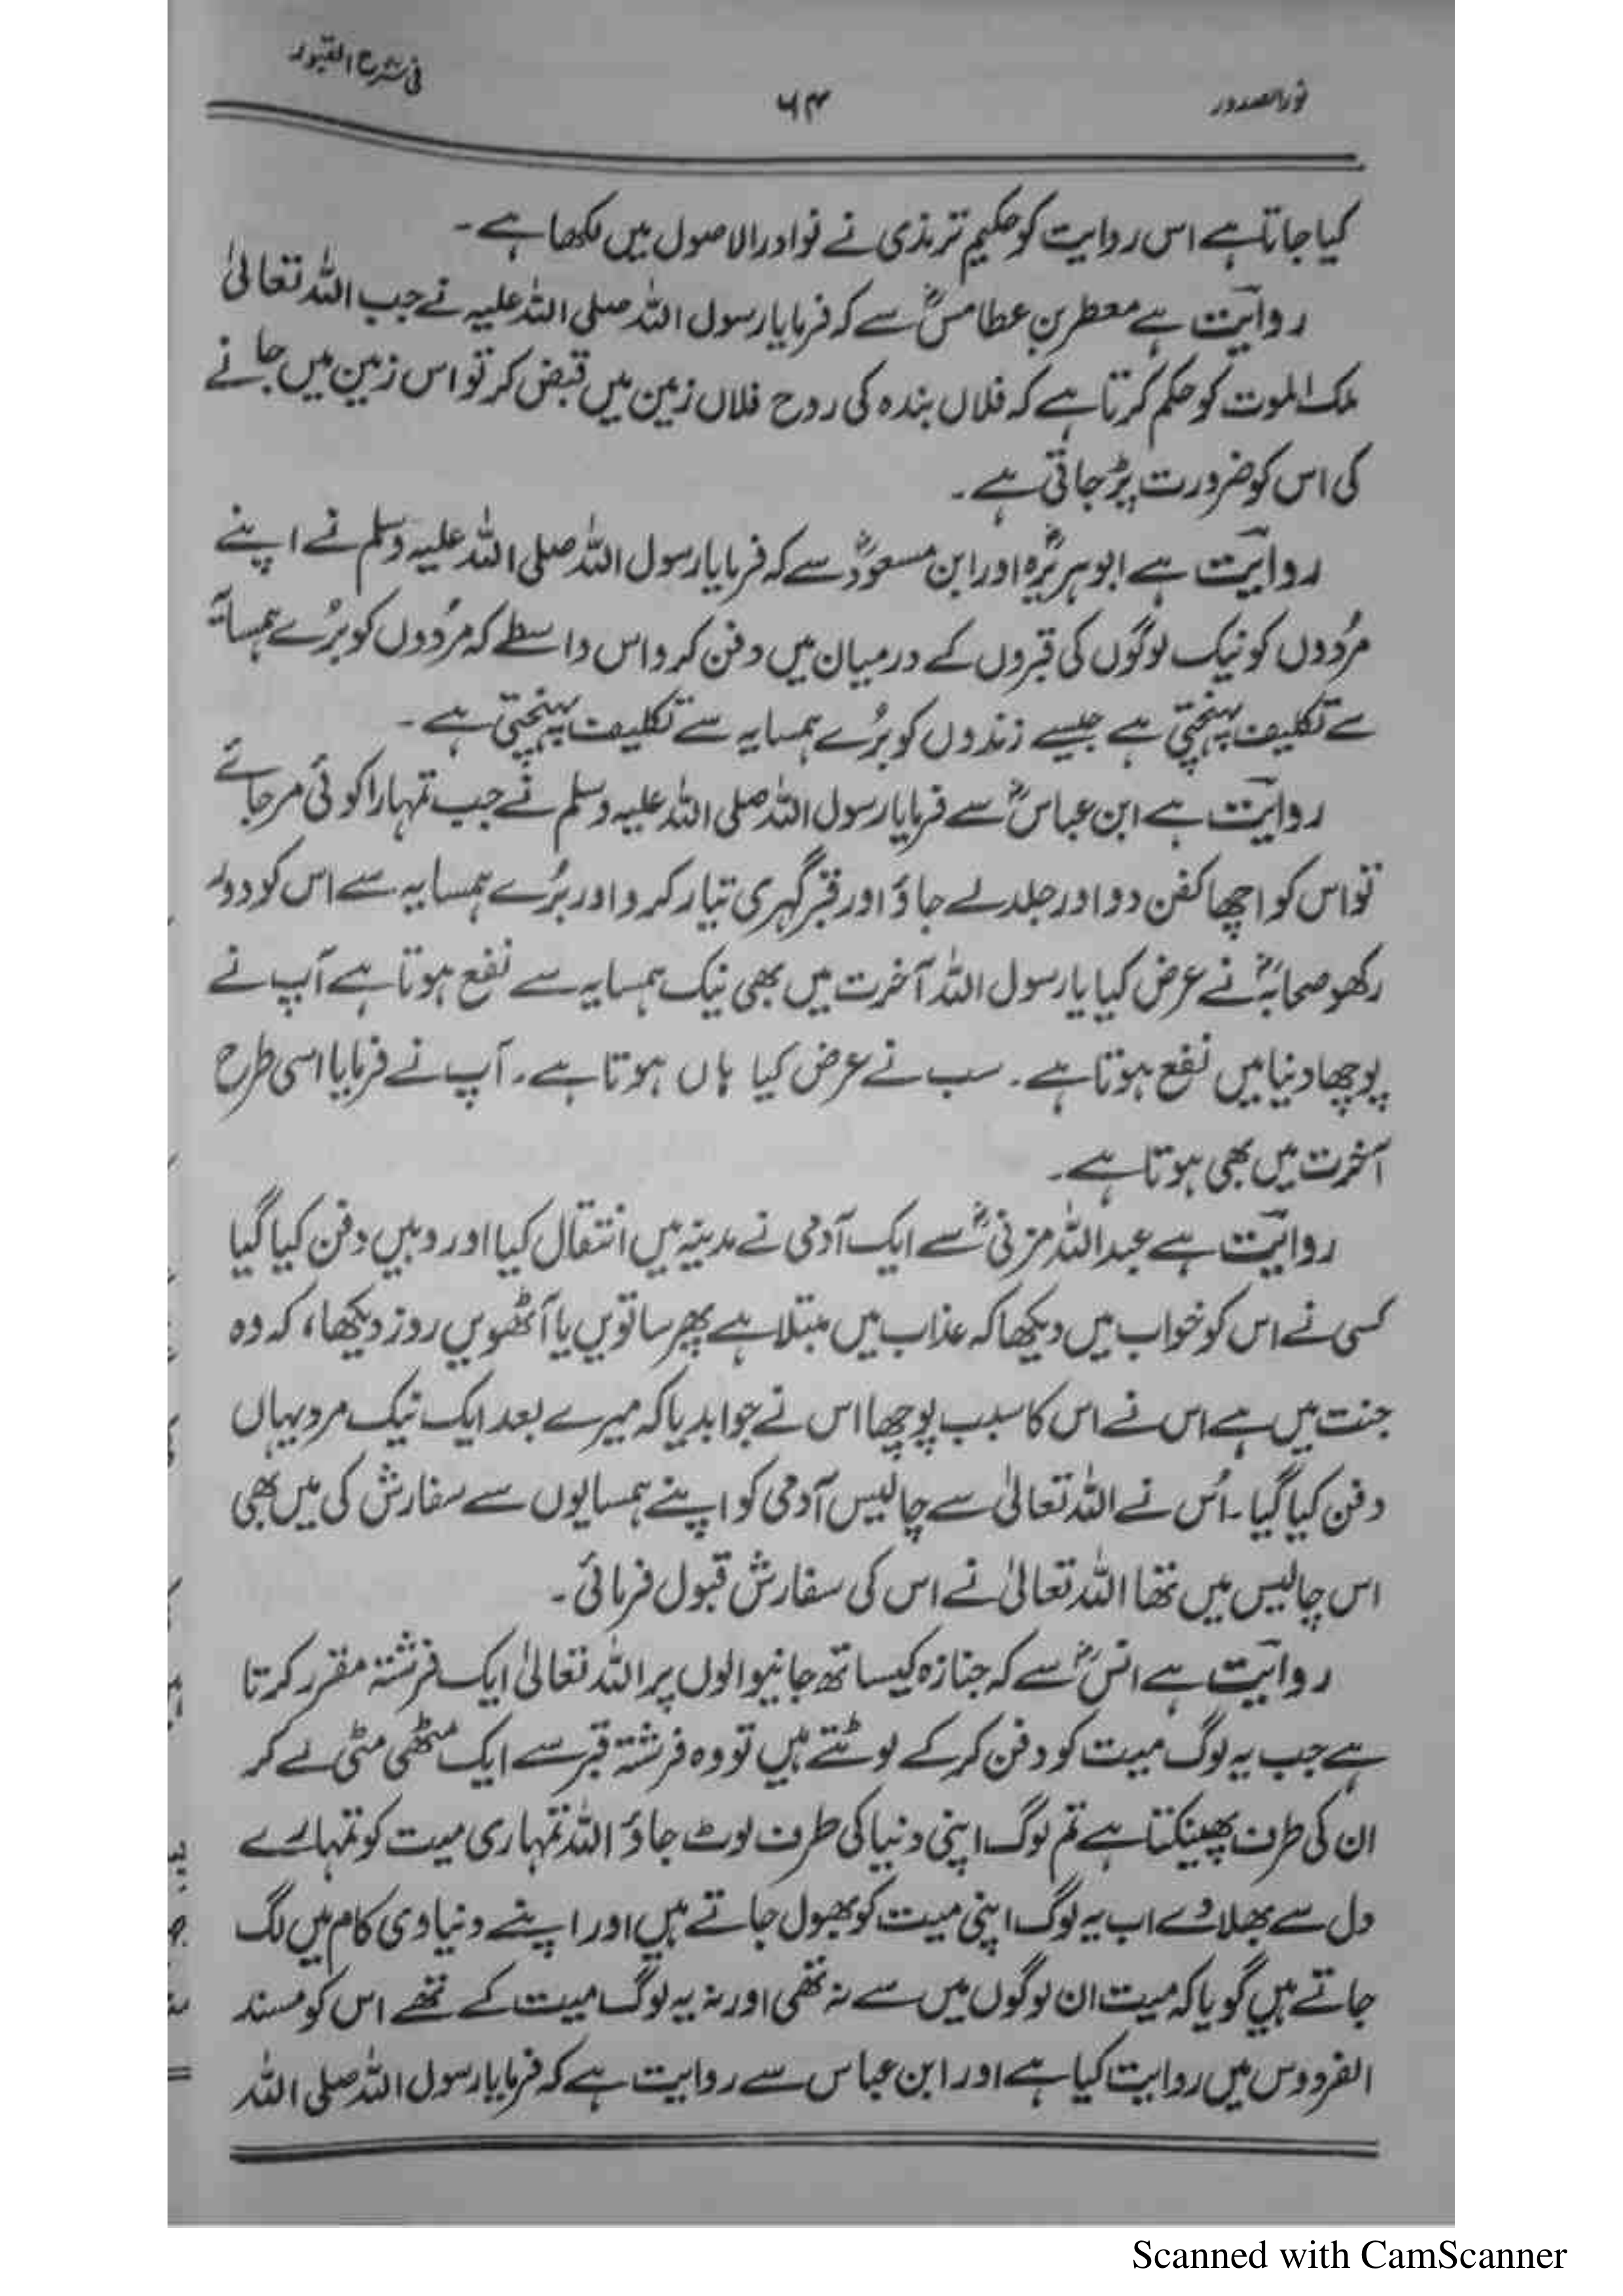 نورالصدور
۶۴
فی شرح القبور
کیا جاتا ہے اس روایت کو حکیم ترمذی نے نوادر الاصول میں لکھا ہے۔
روایت ہے معطر بن عطامسؓ سے کہ فرمایا رسول اللہ صلی اللہ علیہ نے جب اللہ تعالیٰ
ملک الموت کو حکم کرتا ہے کہ فلاں بندہ کی روح فلاں زمین میں قبض کر تو اس زمین میں جانے
کی اس کو ضرورت پڑ جاتی ہے۔
روایت ہے ابوہریرہؓ اور ابن مسعودؓ سے کہ فرمایا رسول اللہ صلی اللہ علیہ وسلم نے اپنے
مُردوں کو نیک لوگوں کی قبروں کے درمیان میں دفن کرو اس واسطے کہ مُردوں کو بُرے ہمسایہ
سے تکلیف پہنچتی ہے جیسے زندوں کو بُرے ہمسایہ سے تکلیف پہنچتی ہے۔
روایت ہے ابن عباسؓ سے فرمایا رسول اللہ صلی اللہ علیہ وسلم نے جب تمہارا کوئی مر جائے
تو اس کو اچھا کفن دو اور جلد لے جاؤ اور قبر گہری تیار کرو اور بُرے ہمسایہ سے اس کو دور
رکھو صحابہؓ نے عرض کیا یا رسول اللہ آخرت میں بھی نیک ہمسایہ سے نفع ہوتا ہے آپ نے
پوچھا دنیا میں نفع ہوتا ہے۔ سب نے عرض کیا ہاں ہوتا ہے۔ آپ نے فرمایا اسی طرح
آخرت میں بھی ہوتا ہے۔
روایت ہے عبداللہ مزنیؓ سے ایک آدمی نے مدینہ میں انتقال کیا اور وہیں دفن کیا گیا
کسی نے اس کو خواب میں دیکھا کہ عذاب میں مبتلا ہے پھر ساتویں یا آٹھویں روز دیکھا، کہ وہ
جنت میں ہے اس نے اس کا سبب پوچھا اس نے جوابدیا کہ میرے بعد ایک نیک مرد یہاں
دفن کیا گیا۔ اُس نے اللہ تعالیٰ سے چالیس آدمی کو اپنے ہمسایوں سے سفارش کی میں بھی
اس چالیس میں تھا اللہ تعالیٰ نے اس کی سفارش قبول فرمائی۔
روایت ہے انسؓ سے کہ جنازہ کیساتھ جانیوالوں پر اللہ تعالیٰ ایک فرشتہ مقرر کرتا
ہے جب یہ لوگ میت کو دفن کرکے لوٹتے ہیں تو وہ فرشتہ قبر سے ایک مٹھی مٹی لے کر
ان کی طرف پھینکتا ہے تم لوگ اپنی دنیا کی طرف لوٹ جاؤ اللہ تمہاری میت کو تمہارے
دل سے بھلا دے اب یہ لوگ اپنی میت کو بھول جاتے ہیں اور اپنے دنیاوی کام میں لگ
جاتے ہیں گویا کہ میت ان لوگوں میں سے نہ تھی اور نہ یہ لوگ میت کے تھے اس کو مسند
الفردوس میں روایت کیا ہے اور ابن عباس سے روایت ہے کہ فرمایا رسول اللہ صلی اللہ
Scanned with CamScanner